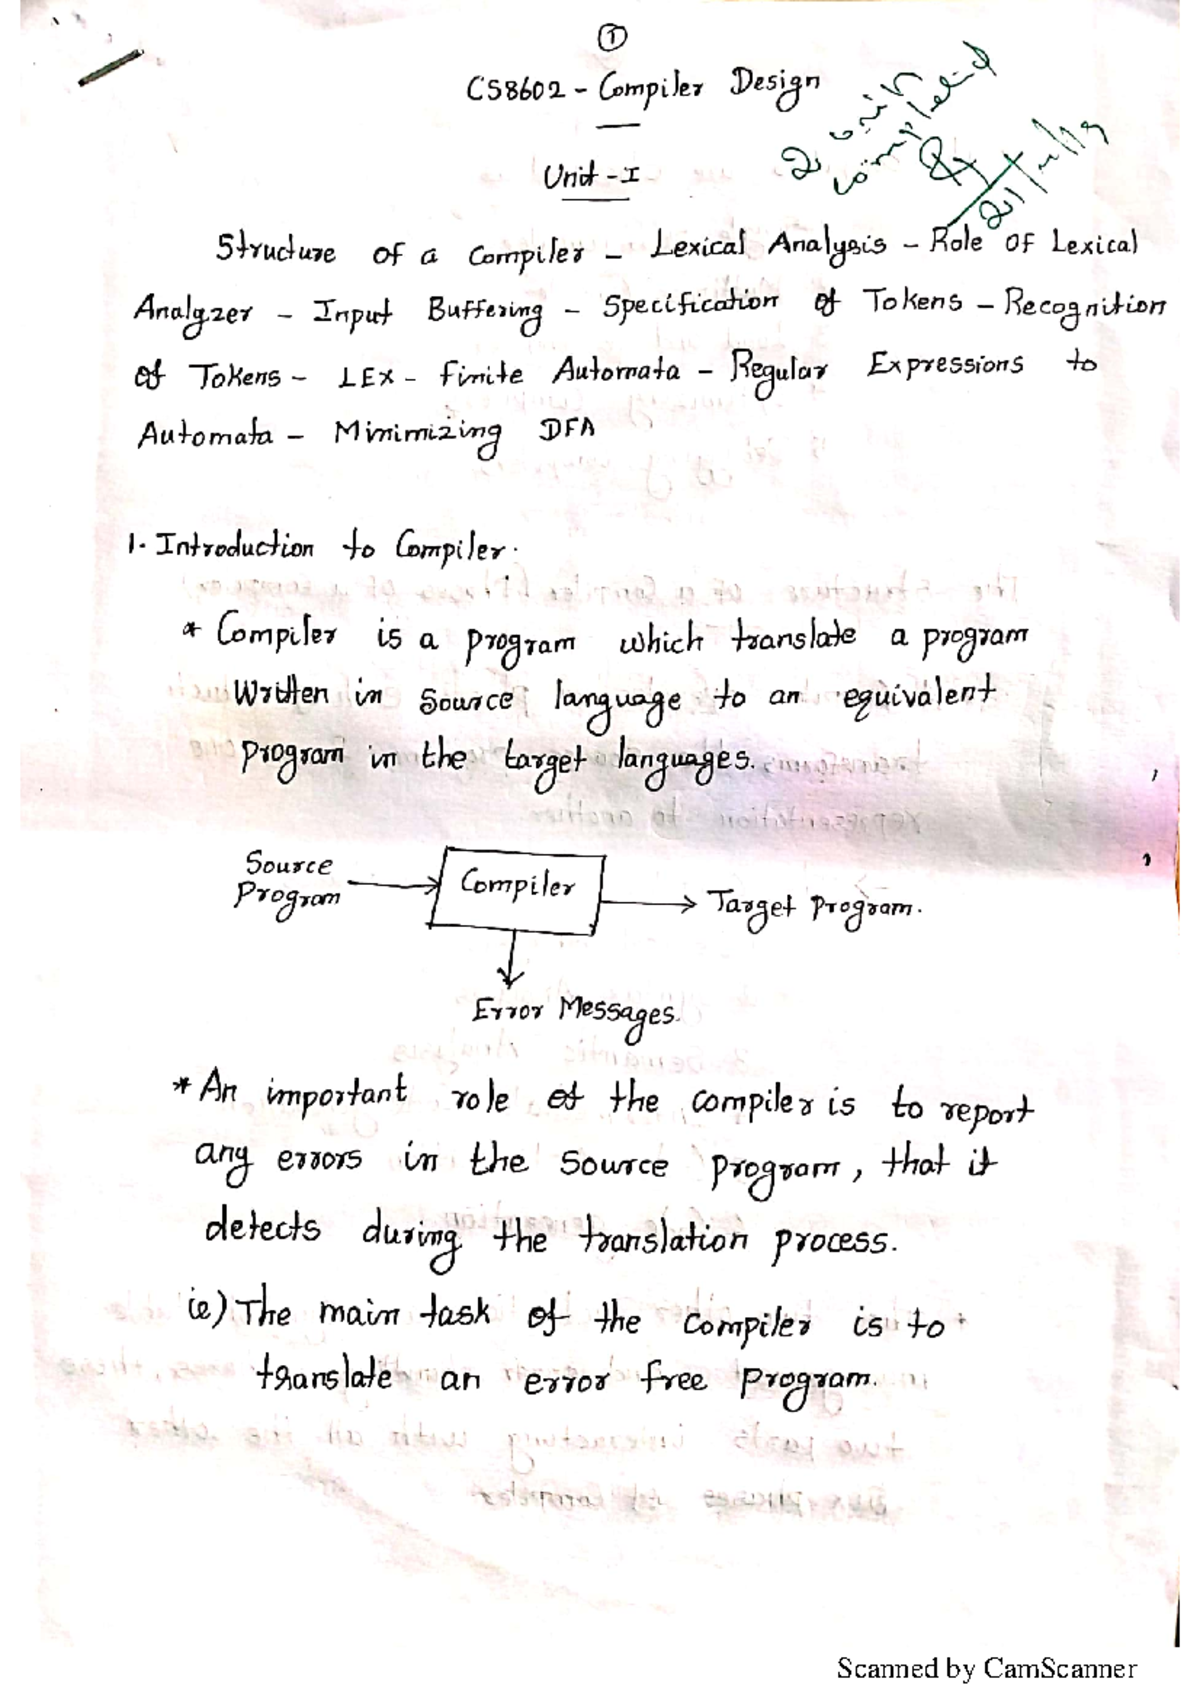 1
CS8602 - Compiler Design
2 unit
completed
Unit - I
Structure of a Compiler - Lexical Analysis - Role of Lexical
Analyzer - Input Buffering - Specification of Tokens - Recognition
of Tokens - LEX - Finite Automata - Regular Expressions to
Automata - Minimizing DFA
1. Introduction to Compiler.
* Compiler is a program which translate a program
Written in Source language to an equivalent
program in the target languages.
Source
Program
Compiler
Target Program.
Error Messages.
* An important role of the compiler is to report
any errors in the source program, that it
detects during the translation process.
ie) The main task of the compiler is to
translate an error free program.
Scanned by CamScanner